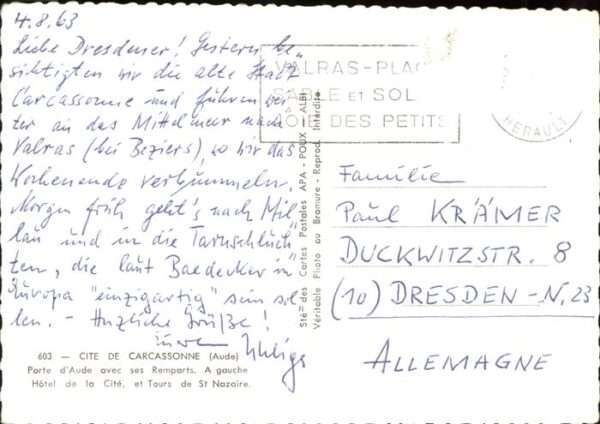 4.8.63
Liebe Dresdener! Gestern be-
sichtigten wir die alte Stadt
Carcassonne und fuhren wei-
ter an das Mittelmeer nach
Valras (bei Beziers), wo wir das
Wochenende verbummeln.
Morgen früh geht's nach Mil-
lau und in die Tarnschluch-
ten, die laut Baedecker in
Europa "einzigartig" sein sol-
len. - Herzliche Grüße!
Eure
603 — CITE DE CARCASSONNE (Aude)
Porte d'Aude avec ses Remparts. A gauche
Hôtel de la Cité, et Tours de St Nazaire.
VALRAS-PLAGE
SABLE ET SOLEIL
JOIE DES PETITS
HERAULT
Sté des Cartes Postales APA - POUX - ALBI
Véritable Photo au Bromure - Reprod. Interdite
Familie
Paul KRÄMER
DUCKWITZSTR. 8
(10) DRESDEN-N.23
ALLEMAGNE